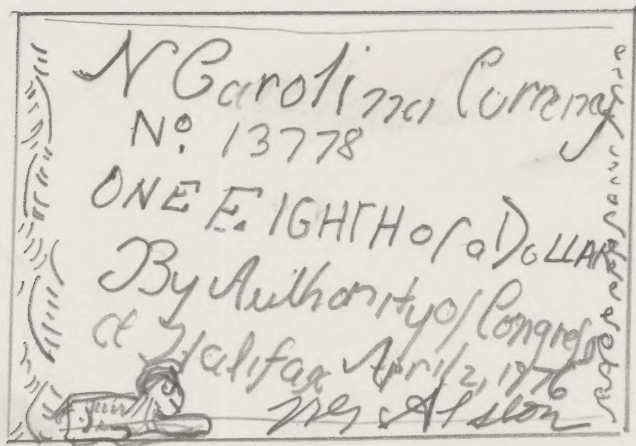 N Carolina Currency
No. 13778
ONE EIGHTH of a DOLLAR
By Authority of Congress
at Halifax April 2, 1776
Alston